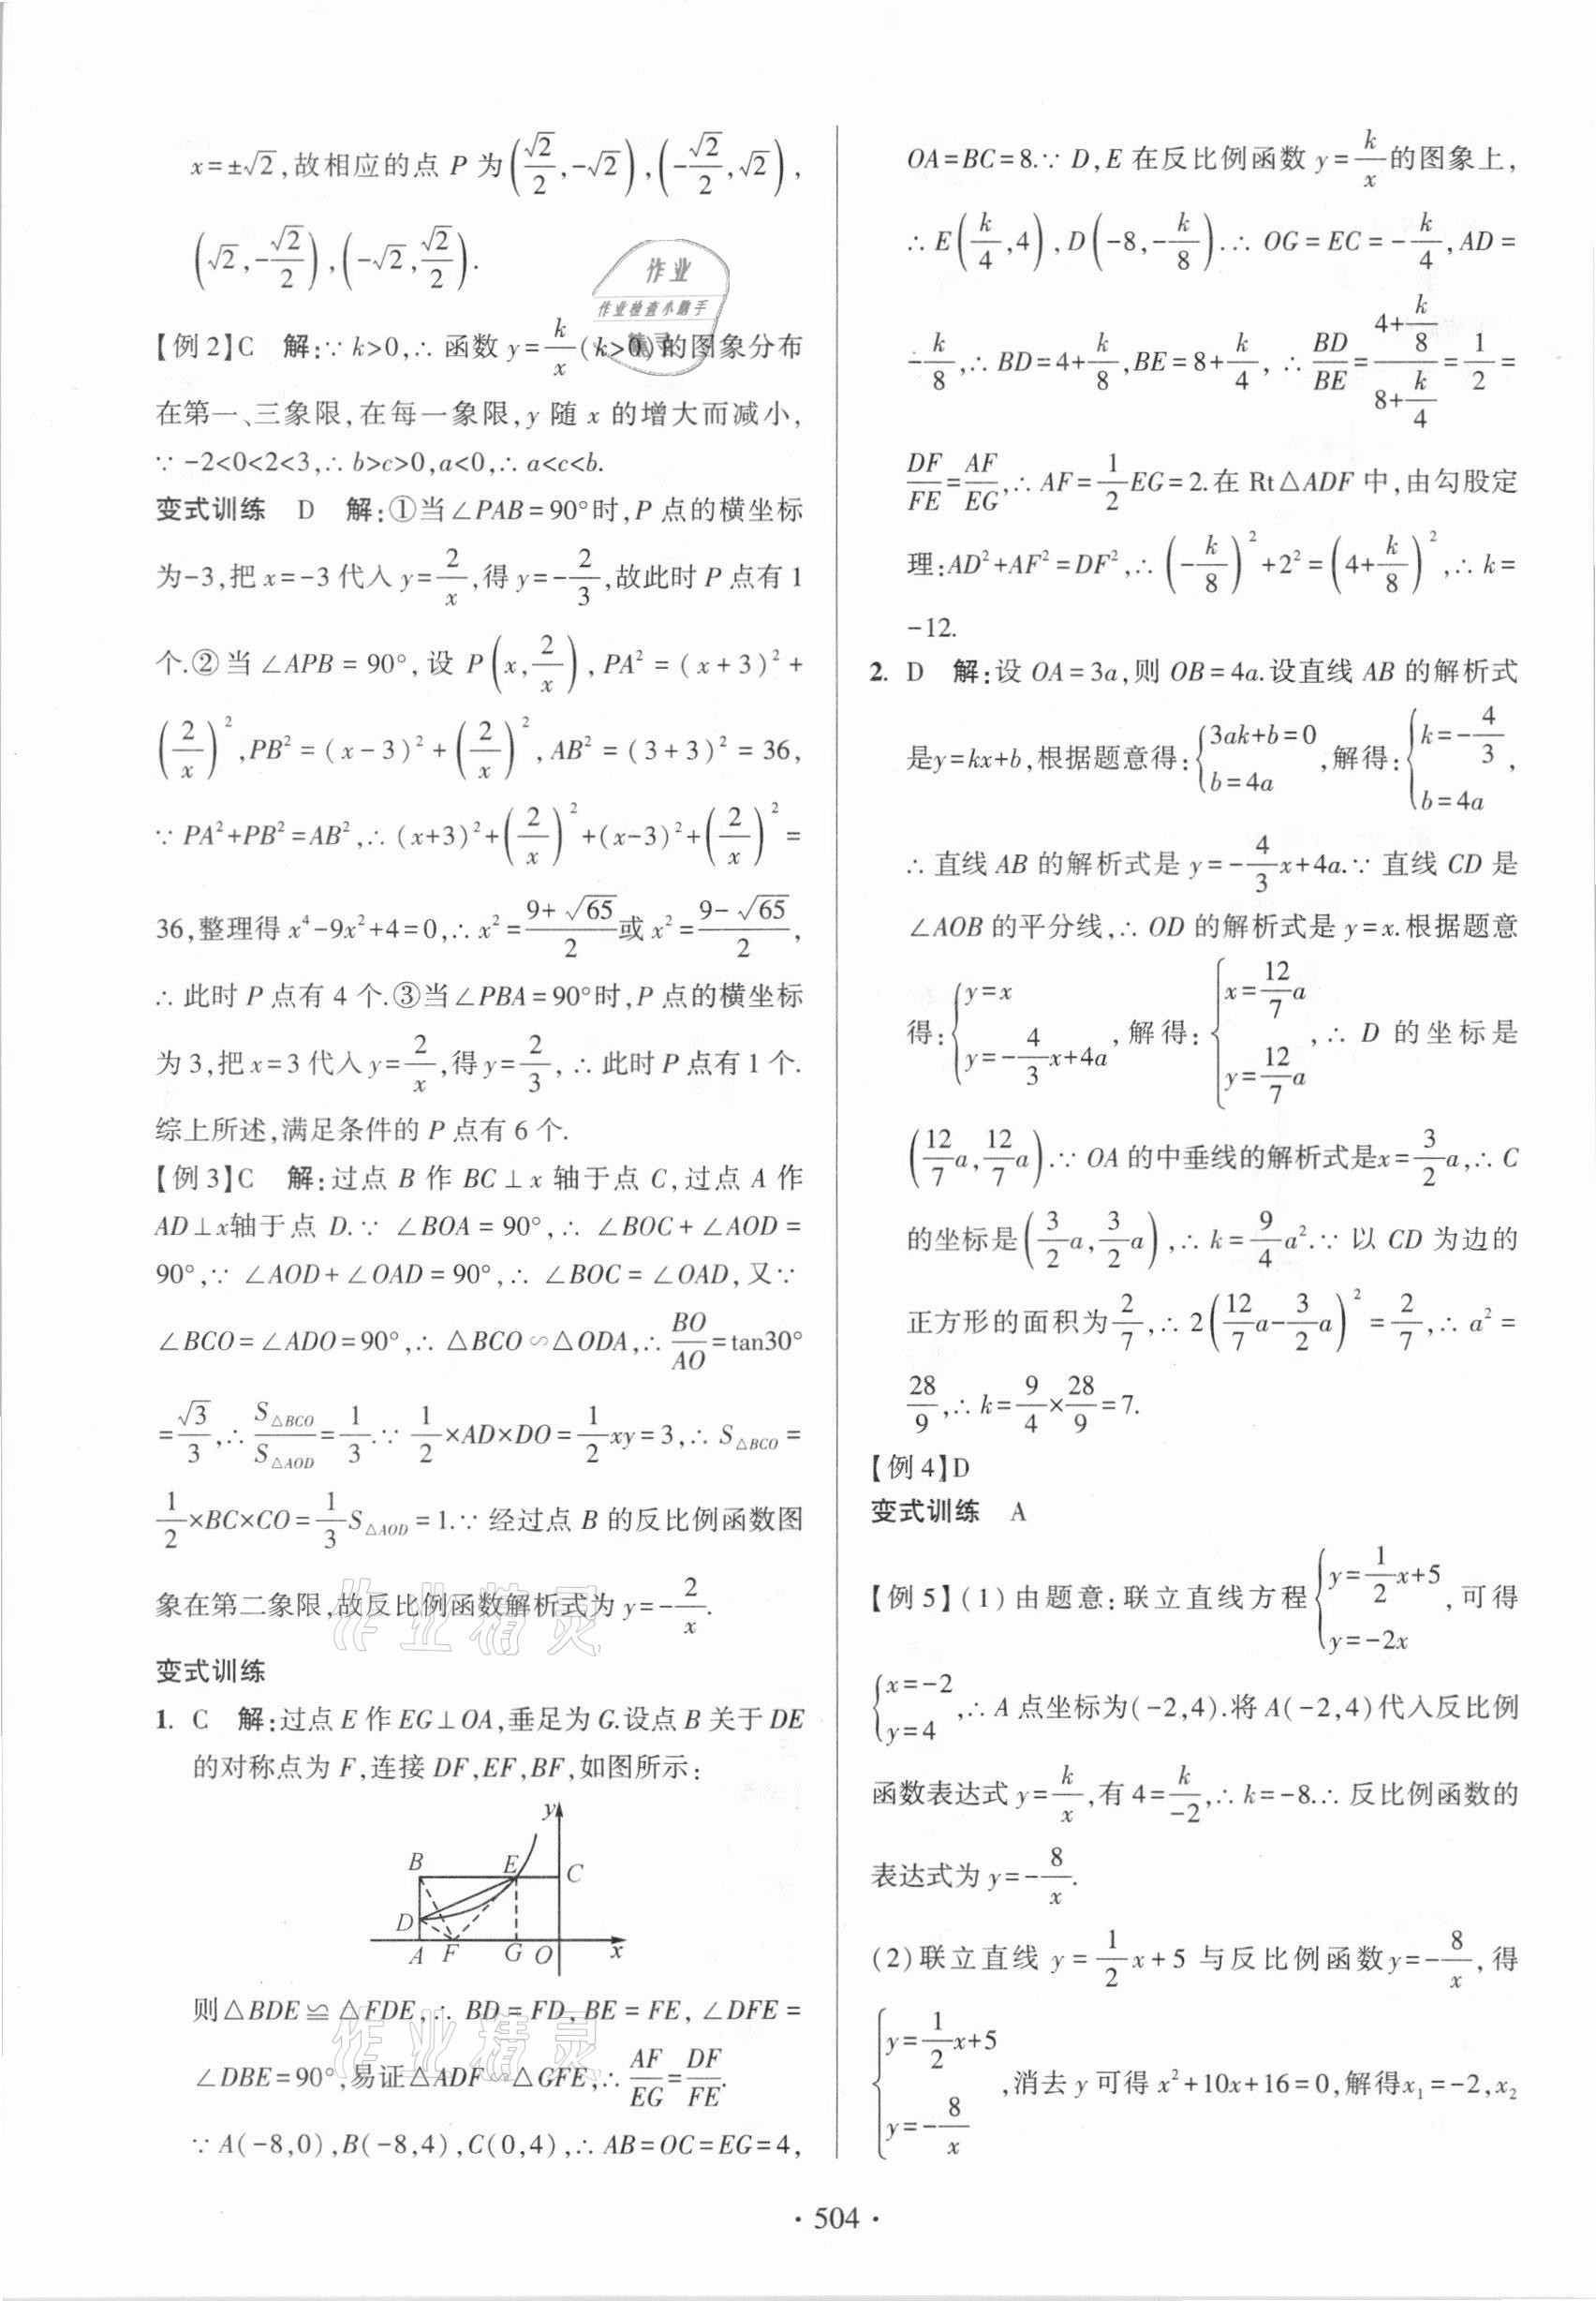 x=±√2,故相应的点 P 为(√2/2,-√2),(-√2/2,√2),
(√2,-√2/2),(-√2,√2/2).
【例2】C 解:∵ k>0,∴ 函数 y=k/x(k>0)的图象分布
在第一、三象限,在每一象限,y 随 x 的增大而减小,
∵ -2<0<2<3,∴ b>c>0,a<0,∴ a<c<b.
变式训练 D 解:①当∠PAB=90°时,P 点的横坐标
为-3,把 x=-3 代入 y=2/x,得 y=-2/3,故此时 P 点有 1
个.②当∠APB=90°,设 P(x,2/x),PA²=(x+3)²+
(2/x)²,PB²=(x-3)²+(2/x)²,AB²=(3+3)²=36,
∵ PA²+PB²=AB²,∴ (x+3)²+(2/x)²+(x-3)²+(2/x)²=
36,整理得 x⁴-9x²+4=0,∴ x²=(9+√65)/2或 x²=(9-√65)/2,
∴ 此时 P 点有 4 个.③当∠PBA=90°时,P 点的横坐标
为 3,把 x=3 代入 y=2/x,得 y=2/3,∴ 此时 P 点有 1 个.
综上所述,满足条件的 P 点有 6 个.
【例3】C 解:过点 B 作 BC⊥x 轴于点 C,过点 A 作
AD⊥x轴于点 D.∵ ∠BOA=90°,∴ ∠BOC+∠AOD=
90°,∵ ∠AOD+∠OAD=90°,∴ ∠BOC=∠OAD,又∵
∠BCO=∠ADO=90°,∴ △BCO∽△ODA,∴ BO/AO=tan30°
=√3/3,∴ S△BCO/S△AOD=1/3.∵ 1/2×AD×DO=1/2xy=3,∴ S△BCO=
1/2×BC×CO=1/3S△AOD=1.∵ 经过点 B 的反比例函数图
象在第二象限,故反比例函数解析式为 y=-2/x.
变式训练
1. C 解:过点 E 作 EG⊥OA,垂足为 G.设点 B 关于 DE
的对称点为 F,连接 DF,EF,BF,如图所示:
y
B E C
D
A F G O x
则△BDE≌△FDE,∴ BD=FD,BE=FE,∠DFE=
∠DBE=90°,易证△ADF∽△GFE,∴ AF/EG=DF/FE.
∵ A(-8,0),B(-8,4),C(0,4),∴ AB=OC=EG=4,
OA=BC=8.∵ D,E 在反比例函数 y=k/x的图象上,
∴ E(k/4,4),D(-8,-k/8).∴ OG=EC=-k/4,AD=
-k/8,∴ BD=4+k/8,BE=8+k/4,∴ BD/BE=(4+k/8)/(8+k/4)=1/2=
DF/FE=AF/EG,∴ AF=1/2EG=2.在 Rt△ADF 中,由勾股定
理:AD²+AF²=DF²,∴ (-k/8)²+2²=(4+k/8)²,∴ k=
-12.
2. D 解:设 OA=3a,则 OB=4a.设直线 AB 的解析式
是y=kx+b,根据题意得:{3ak+b=0 b=4a,解得:{k=-4/3 b=4a,
∴ 直线 AB 的解析式是 y=-4/3x+4a.∵ 直线 CD 是
∠AOB 的平分线,∴ OD 的解析式是 y=x.根据题意
得:{y=x y=-4/3x+4a,解得:{x=12/7a y=12/7a,∴ D 的坐标是
(12/7a,12/7a).∵ OA 的中垂线的解析式是x=3/2a,∴ C
的坐标是(3/2a,3/2a),∴ k=9/4a².∵ 以 CD 为边的
正方形的面积为2/7,∴ 2(12/7a-3/2a)²=2/7,∴ a²=
28/9,∴ k=9/4×28/9=7.
【例4】D
变式训练 A
【例5】(1)由题意:联立直线方程{y=1/2x+5 y=-2x,可得
{x=-2 y=4,∴ A 点坐标为(-2,4).将 A(-2,4)代入反比例
函数表达式 y=k/x,有 4=k/-2,∴ k=-8.∴ 反比例函数的
表达式为 y=-8/x.
(2)联立直线 y=1/2x+5 与反比例函数y=-8/x,得
{y=1/2x+5 y=-8/x,消去 y 可得 x²+10x+16=0,解得x₁=-2,x₂
· 504 ·
作业
作业检查小助手
作业精灵
作业精灵